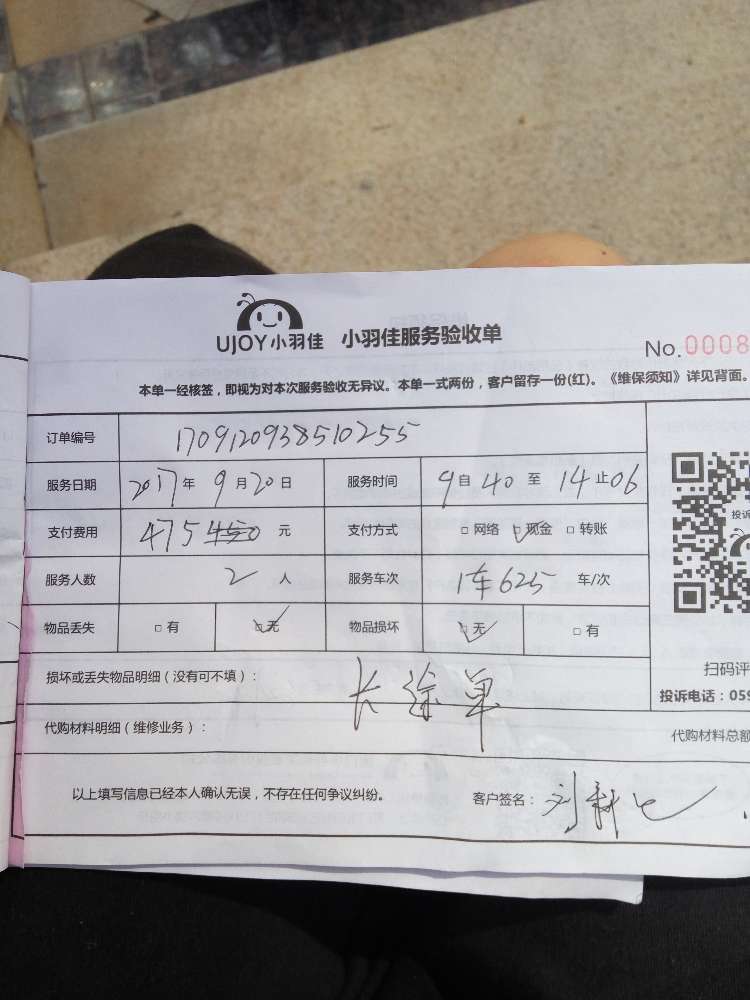 UJOY小羽佳 小羽佳服务验收单
No.0008
本单一经核签，即视为对本次服务验收无异议。本单一式两份，客户留存一份(红)。《维保须知》详见背面。
订单编号 170912093851025​5
服务日期 2017年 9月20日 服务时间 9自40至14止06
支付费用 475 450 元 支付方式 □网络 □现金 □转账
服务人数 2人 服务车次 1车625 车/次
物品丢失 □有 □无 物品损坏 □无 □有
投诉
扫码评
损坏或丢失物品明细（没有可不填）：
投诉电话：059
长途单
代购材料明细（维修业务）：
代购材料总额
以上填写信息已经本人确认无误，不存在任何争议纠纷。 客户签名：刘